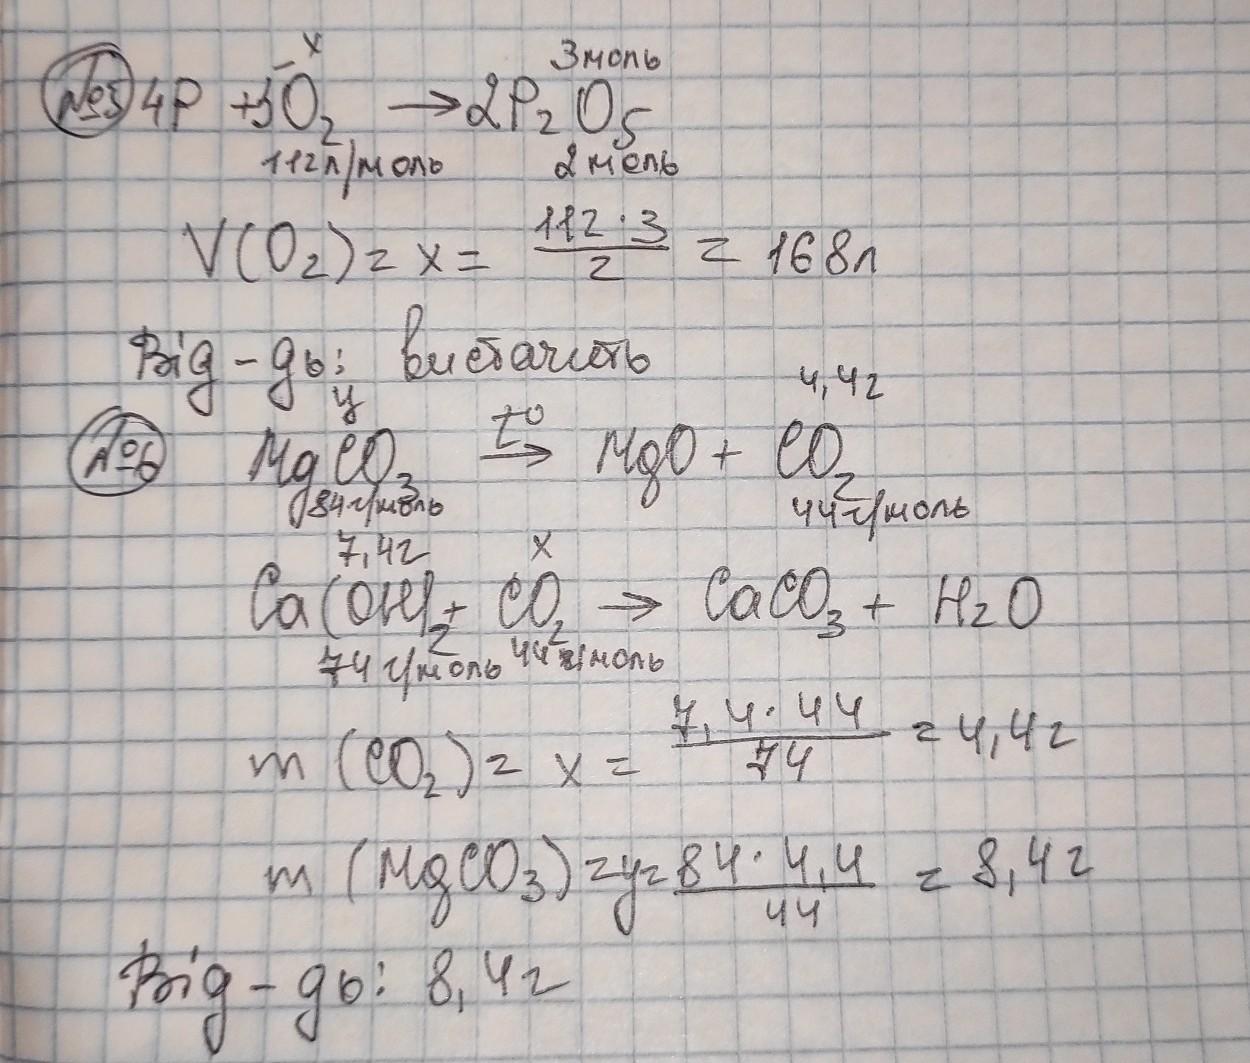 x 3 моль
№5 4P + 5O₂ → 2P₂O₅
112л/моль 2 моль
V(O₂) = x = 112·3/2 = 168л
Від-дь: вистачить
y 4,4г
№6 MgCO₃ t° → MgO + CO₂
84г/моль 44г/моль
7,4г x
Ca(OH)₂ + CO₂ → CaCO₃ + H₂O
74г/моль 44г/моль
m (CO₂) = x = 7,4·44/74 = 4,4г
m (MgCO₃) = y = 84·4,4/44 = 8,4г
Від-дь: 8,4г